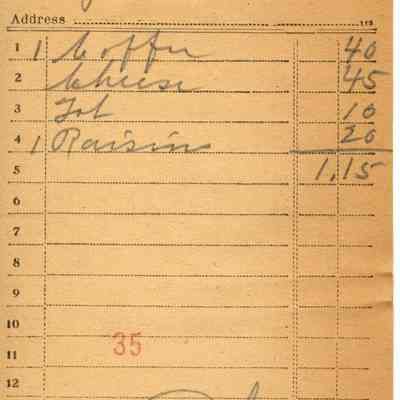 Address
1 1 Coffee 40
2 Cheese 45
3 10
4 1 Raisins 20
5 1.15
6
7
8
9
10
35
11
12